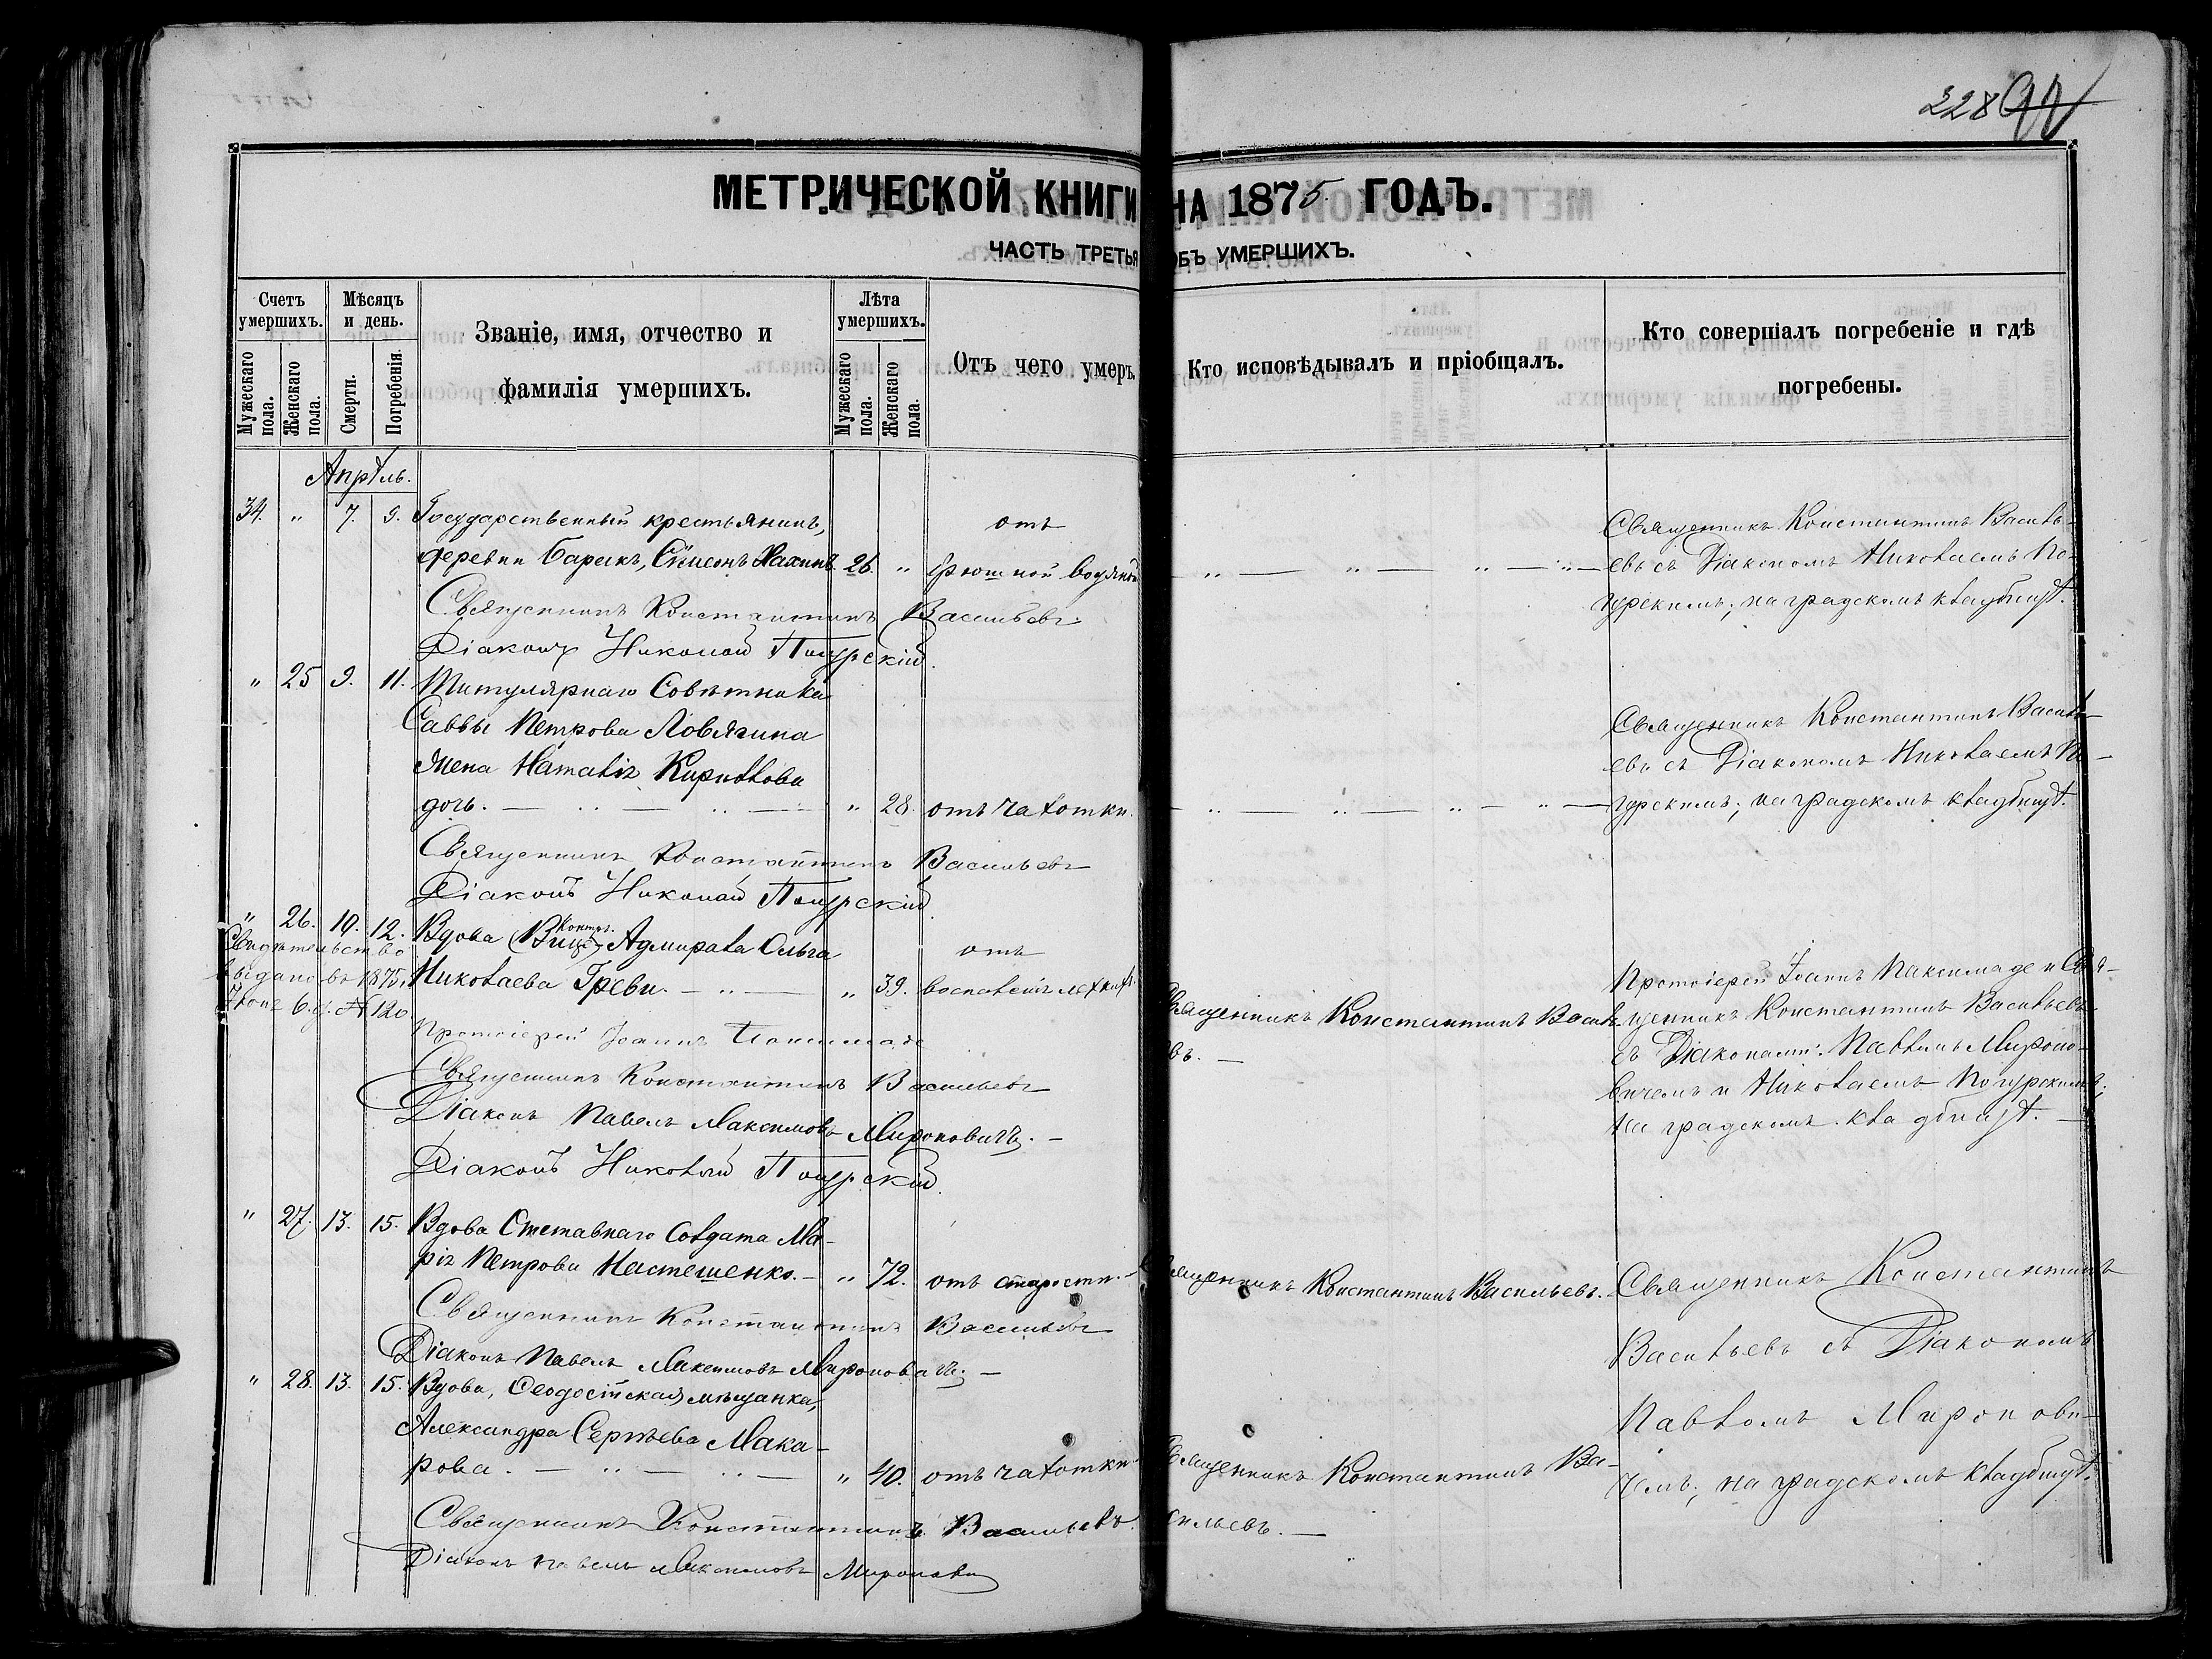 328
МЕТРИЧЕСКОЙ КНИГИ НА 1875 ГОДЪ.
ЧАСТЬ ТРЕТЬЯ ОБЪ УМЕРШИХЪ.
Счетъ умершихъ.
Мужескаго пола.
Женскаго пола.
Мѣсяцъ и день.
Смерти.
Погребенія.
Званіе, имя, отчество и
фамилія умершихъ.
Лѣта умершихъ.
Мужескаго пола.
Женскаго пола.
Отъ чего умеръ.
Кто исповѣдывалъ и пріобщалъ.
Кто совершалъ погребеніе и гдѣ
погребены.
Апрѣль.
34. " 7. 9. Государственный крестьянинъ, отъ
деревни Сѵмеонъ 26. " брюшной водянки
Священникъ Константинъ Василь-
евъ съ Діакономъ Николаемъ По-
гурскимъ; на градскомъ кладбищѣ.
Священникъ Константинъ Васильевъ
Діаконъ Николай Погурскій.
" 25 9. 11. Титулярнаго Совѣтника
Саввы Петрова Ловягина
жена Наталія Кириллова
дочь. " 28. отъ чахотки.
Священникъ Константинъ Василь-
евъ съ Діакономъ Николаемъ По-
гурскимъ; на градскомъ кладбищѣ.
Священникъ Константинъ Васильевъ
Діаконъ Николай Погурскій.
" 26. 10. 12. Вдова (Вице) Контръ-Адмирала Ольга отъ
Николаева Греви. " 39. воспаленія легкихъ.
Свидѣтельство
выдано въ 1875 г.
Іюня 6 д. № 120
Священникъ Константинъ Василь-
евъ.
Протоіерей Іоаннъ Паксимаде и Свя-
щенникъ Константинъ Васильевъ
съ Діаконами: Павломъ Мироно-
вичемъ и Николаемъ Погурскимъ;
на градскомъ кладбищѣ.
Протоіерей Іоаннъ Паксимаде
Священникъ Константинъ Васильевъ
Діаконъ Павелъ Максимовъ Мироновичъ.
Діаконъ Николай Погурскій.
" 27. 13. 15. Вдова Отставнаго Солдата Ма-
рія Петрова Настешенко. " 72. отъ старости.
Священникъ Константинъ Васильевъ.
Священникъ Константинъ Васильевъ
Діаконъ Павелъ Максимовъ Мироновичъ.
" 28. 13. 15. Вдова, Ѳеодосійская мѣщанка,
Александра Сергѣева Мака-
рова. " 40. отъ чахотки
Священникъ Константинъ Ва-
сильевъ.
Священникъ Константинъ
Васильевъ съ Діакономъ
Павломъ Миронови-
чемъ; на градскомъ кладбищѣ.
Священникъ Константинъ Васильевъ.
Діаконъ Павелъ Максимовъ Мироновичъ